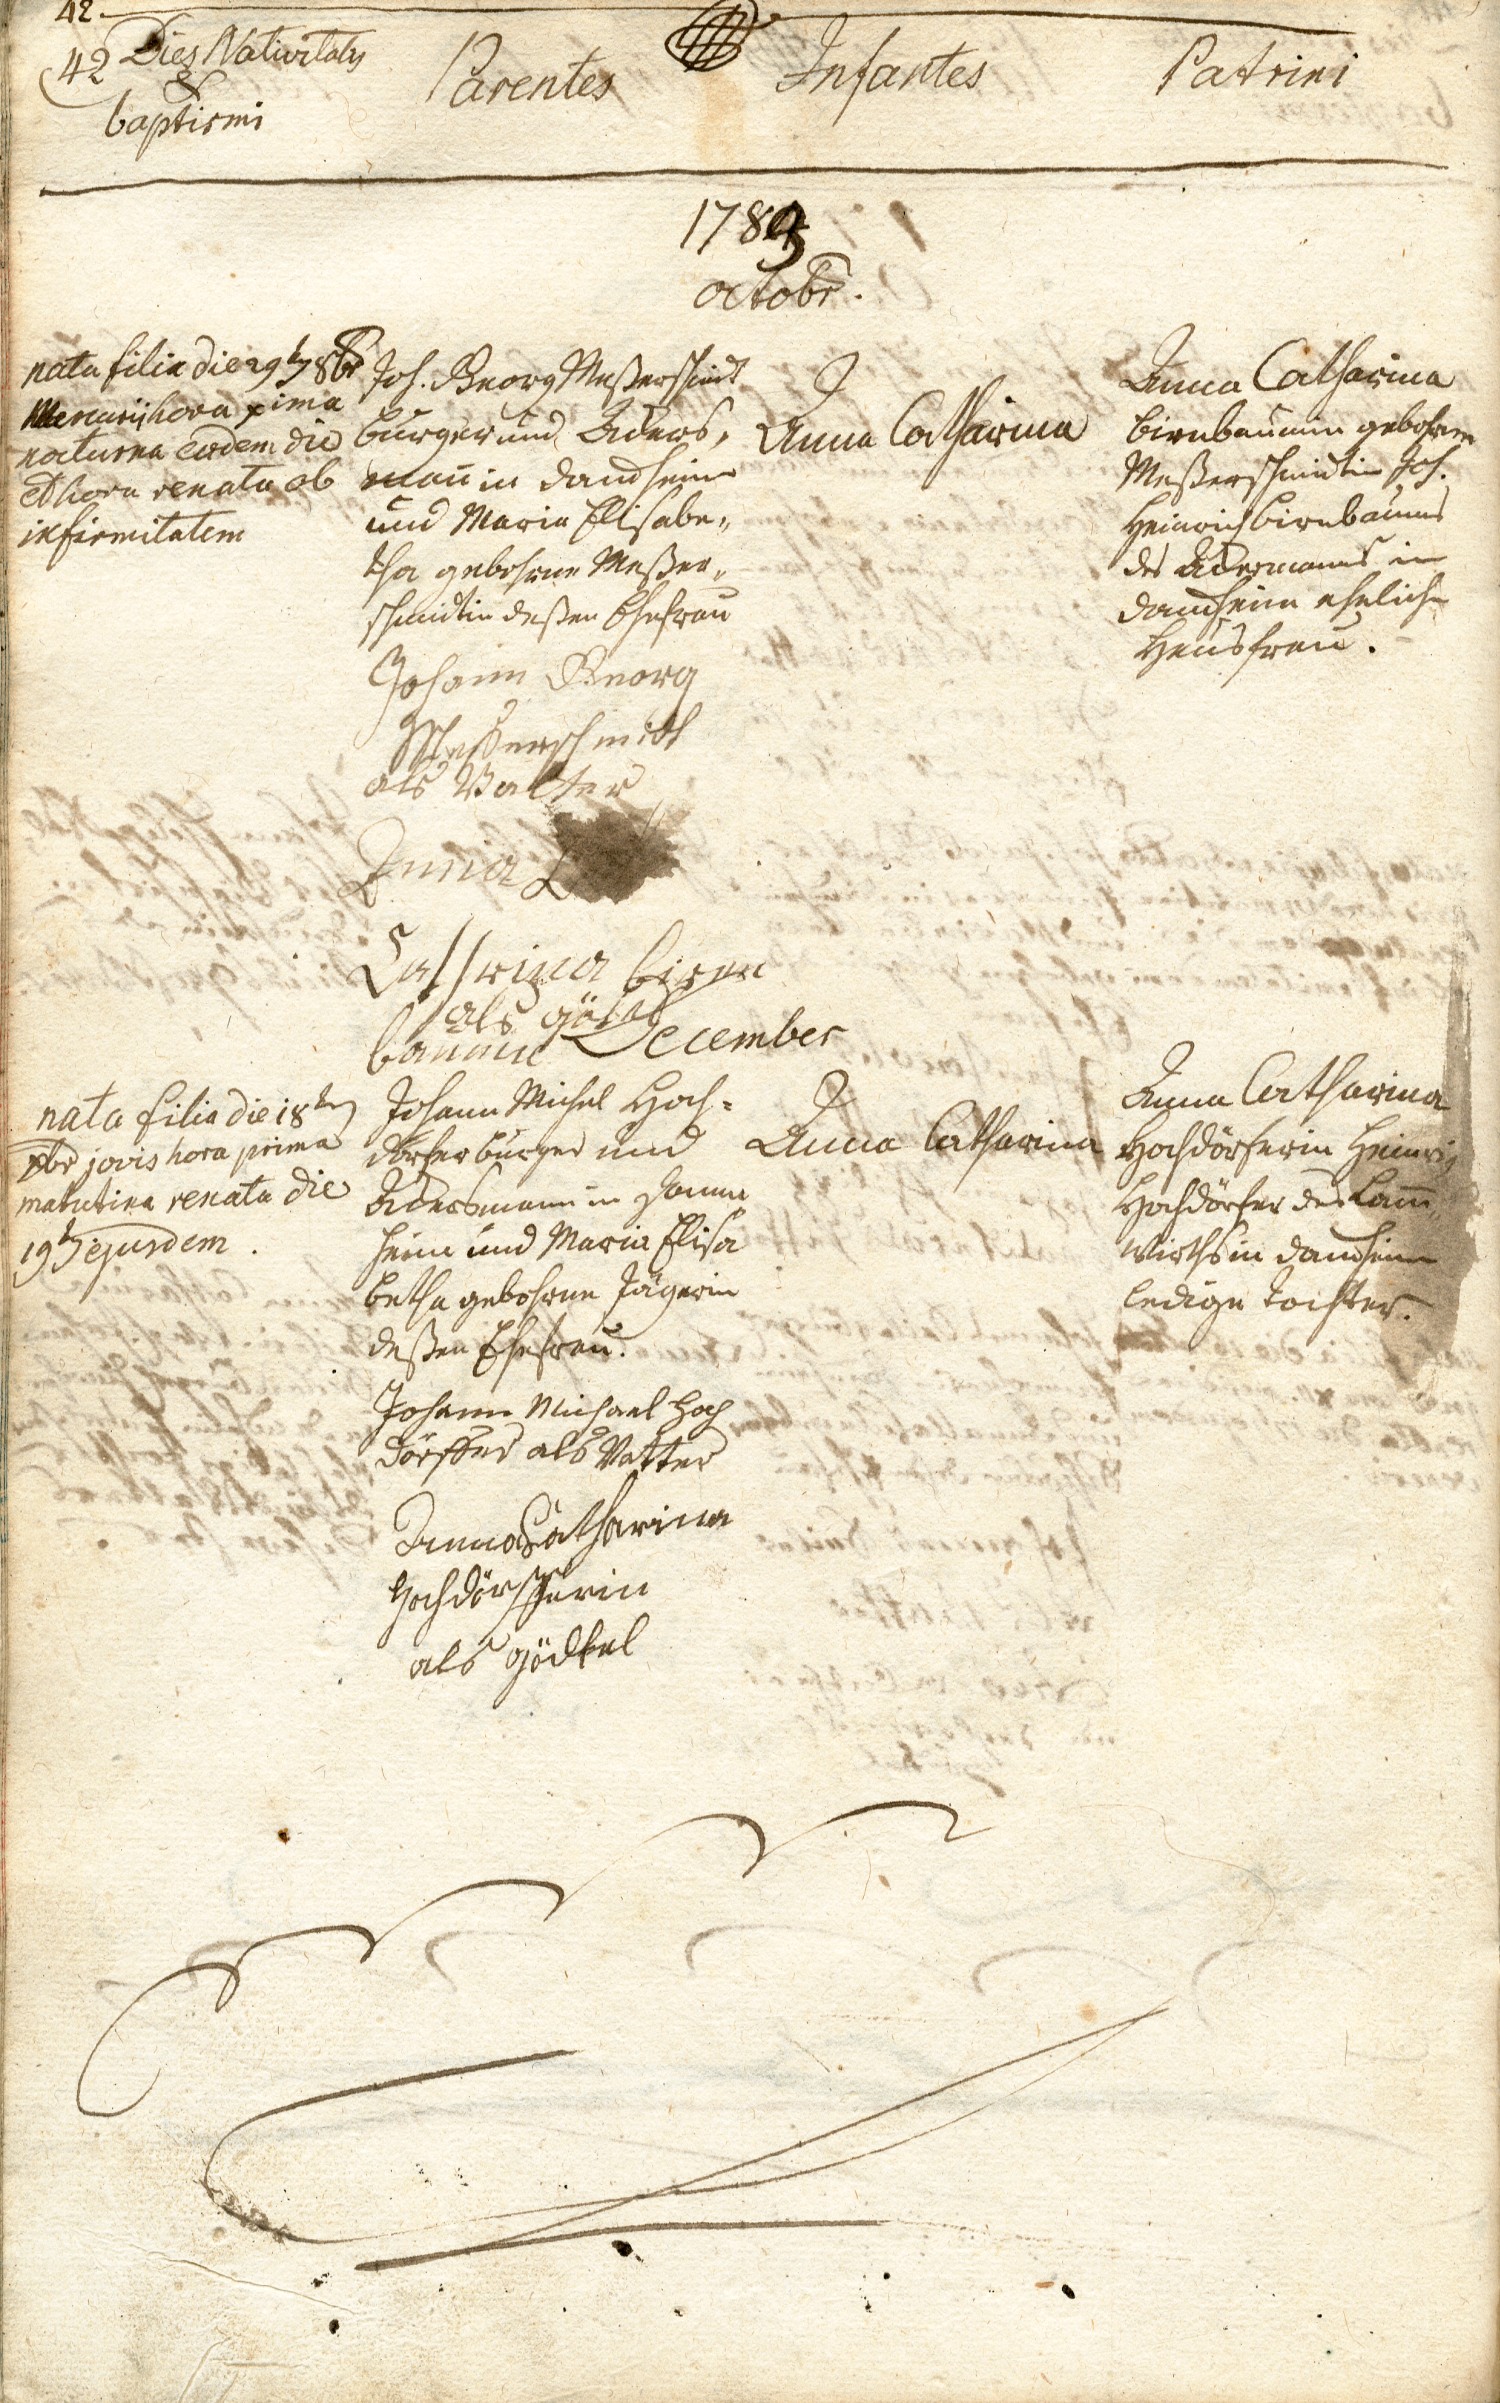 42.
42 Dies Nativitatis
&
baptismi
Parentes
Infantes
Patrini
1783
octobr.
nata filia die 29ten 8br
Mercurij hora prima
nocturna eodem die
et hora renata ob
infirmitatem
Joh. Georg Meßerschmidt
burger und Ackers,
man in Dandheim
und Maria Elisabe,,
tha gebohrne Meßer,,
schmidtin deßen Ehefrau
Johann Georg
Messerschmitt
als Vatter
Anna
Cathrina biren
als göthel
baumin
Anna Catharina
Anna Catharina
birnbaumin gebohrne
Meßerschmidtin Joh.
Heinrich birnbaums
des Ackermanns in
Dandheim ehelich
Hausfrau.
December
nata filia die 18ten
xbr jovis hora prima
matutina renata die
19ten ejusdem.
Johann Michel Hoch=
dörfer burger und
Ackersmann in
heim und Maria Elisa
betha gebohrne Jägerin
deßen Ehefrau.
Johann Michael Hoch
dörffer als Vatter
Anna Catharina
Hochdörfferin
als Gödtel
Anna Catharina
Anna Catharina
Hochdörferin Heinrich
Hochdörfer des Lam,
wirths in Dandheim
ledige Tochter.